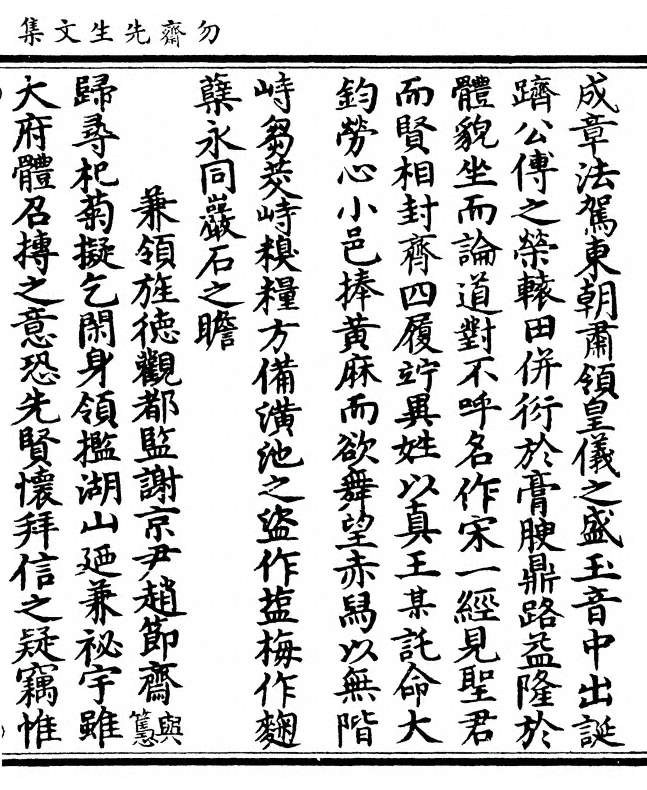 勿齋先生文集
成章法駕東朝肅領皇儀之盛玉音中出誕
躋公傳之榮轅田併衍於膏腴鼎路益隆於
體貌坐而論道對不呼名作宋一經見聖君
而賢相封齊四履竚異姓以真王某託命大
鈞勞心小邑捧黃麻而欲舞望赤舄以無階
峙芻茭峙糗糧方備潢池之盜作塩梅作麴
蘖永同巖石之瞻
兼領旌德觀都監謝京尹趙節齋與𥲅
歸尋杞菊擬乞閑身領㩜湖山廼兼祕宇雖
大府體召摶之意恐先賢懷拜信之疑竊惟